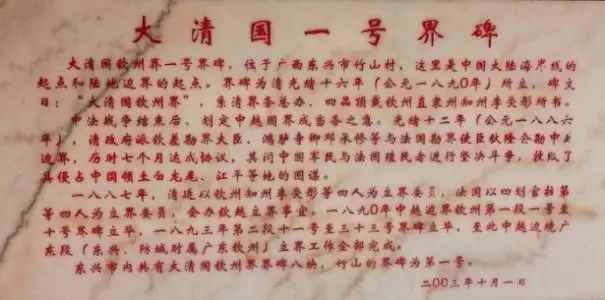 大清国一号界碑
大清国钦州界一号界碑，位于广西东兴市竹山村，这里是中国大陆海岸线的
起点和陆地边界的起点。界碑为清光绪十六年（公元一八九0年）所立，碑文
曰：“大清国钦州界”，系清界务总办、四品顶戴钦州直隶州知州李受彤所书。
中法战争结束后，划定中越国界成当务之急。光绪十二年（公元一八八六
年），清政府派钦差勘界大臣、鸿胪寺卿邓承修等与法国勘界使臣狄隆会勘中越
边界，历时七个月达成协议，其间中国军民与法国殖民者进行坚决斗争，挫败了
其侵占中国领土白龙尾、江平等地的图谋。
一八八七年，清廷以钦州知州李受彤等四人为立界委员，法国以四划官拉等
等四人为立界委员，会办钦越立界事宜。一八九0年中越边界钦州第一段一号至
十号界碑立毕，一八九三年第二段十一号至三十三号界碑立毕，至此中越边境广
东段（东兴、防城时属广东钦州）立界工作全部完成。
东兴市内共有大清国钦州界界碑八块，竹山的界碑为第一号。
二00三年十月一日